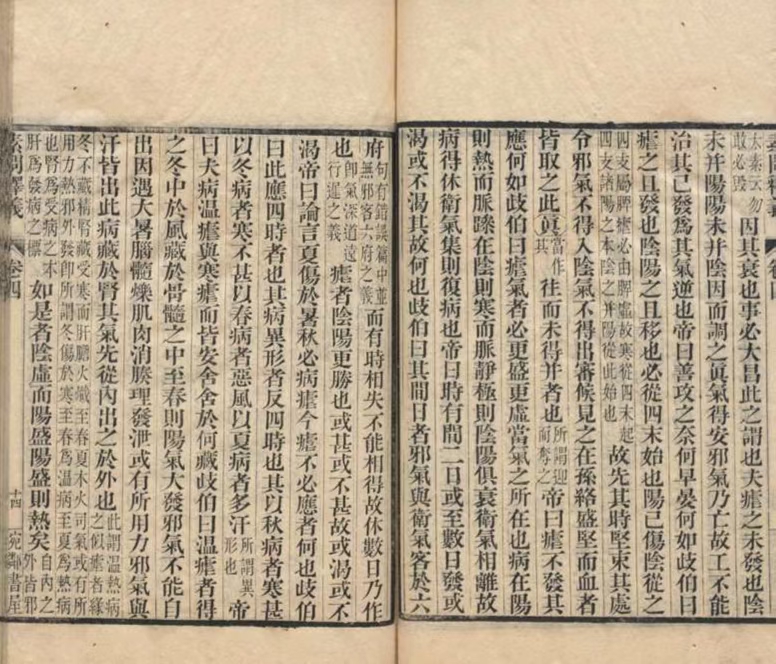 太素云勿敢必毀因其衰也事必大昌此之謂也夫瘧之未發也陰
未并陽陽未并陰因而調之眞氣得安邪氣乃亡故工不能
治其已發爲其氣逆也帝曰善攻之奈何早晏何如歧伯曰
瘧之且發也陰陽之且移也必從四末始也陽已傷陰從之
四支屬脾瘧必由脾虛故寒從四末起四支諸陽之本陰之并陽從此始也故先其時堅束其處
令邪氣不得入陰氣不得出審候見之在孫絡盛堅而血者
皆取之此眞當作其往而未得并者也所謂迎而奪之帝曰瘧不發其
應何如歧伯曰瘧氣者必更盛更虛當氣之所在也病在陽
則熱而脈躁在陰則寒而脈靜極則陰陽俱衰衛氣相離故
病得休衛氣集則復病也帝曰時有間二日或至數日發或
渴或不渴其故何也歧伯曰其間日者邪氣與衛氣客於六
府句有錯誤篇中並無邪客六府之義而有時相失不能相得故休數日乃作
也卽氣深道遠行遲之義瘧者陰陽更勝也或甚或不甚故或渴或不
渴帝曰論言夏傷於暑秋必病瘧今瘧不必應者何也歧伯
曰此應四時者也其病異形者反四時也其以秋病者寒甚
以冬病者寒不甚以春病者惡風以夏病者多汗所謂異形也帝
曰夫病温瘧與寒瘧而皆安舍舍於何藏歧伯曰温瘧者得
之冬中於風藏於骨髓之中至春則陽氣大發邪氣不能自
出因遇大暑腦髓爍肌肉消腠理發泄或有所用力邪氣與
汗皆出此病藏於腎其氣先從內出之於外也此謂温熱病之似瘧者緣
冬不藏精腎藏受寒而肝膽火熾至春夏木火司氣或有所用力熱邪外發卽所謂冬傷於寒至春爲温病至夏爲熱病
也腎爲受病之本肝爲發病之標如是者陰虛而陽盛陽盛則熱矣自內之外皆邪
素問釋義 卷四 十四 宛鄰書屋